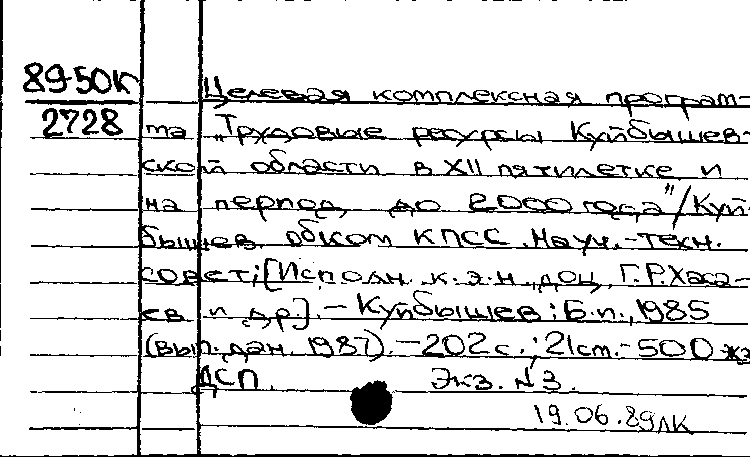 89-50К
2728
Целевая комплексная програм-
ма „Трудовые ресурсы Куйбышев-
ской области в XII пятилетке и
на период до 2000 года"/Куй-
бышев. обком КПСС. Науч.-техн.
совет; [Исполн. к.э.н., доц. Г.Р.Хаса-
ев и др.]. - Куйбышев: Б.и., 1985
(вып. дан. 1987). - 202 с.; 21 см. - 500 экз
ДСП. Экз. N 3.
19.06.89 ЛК